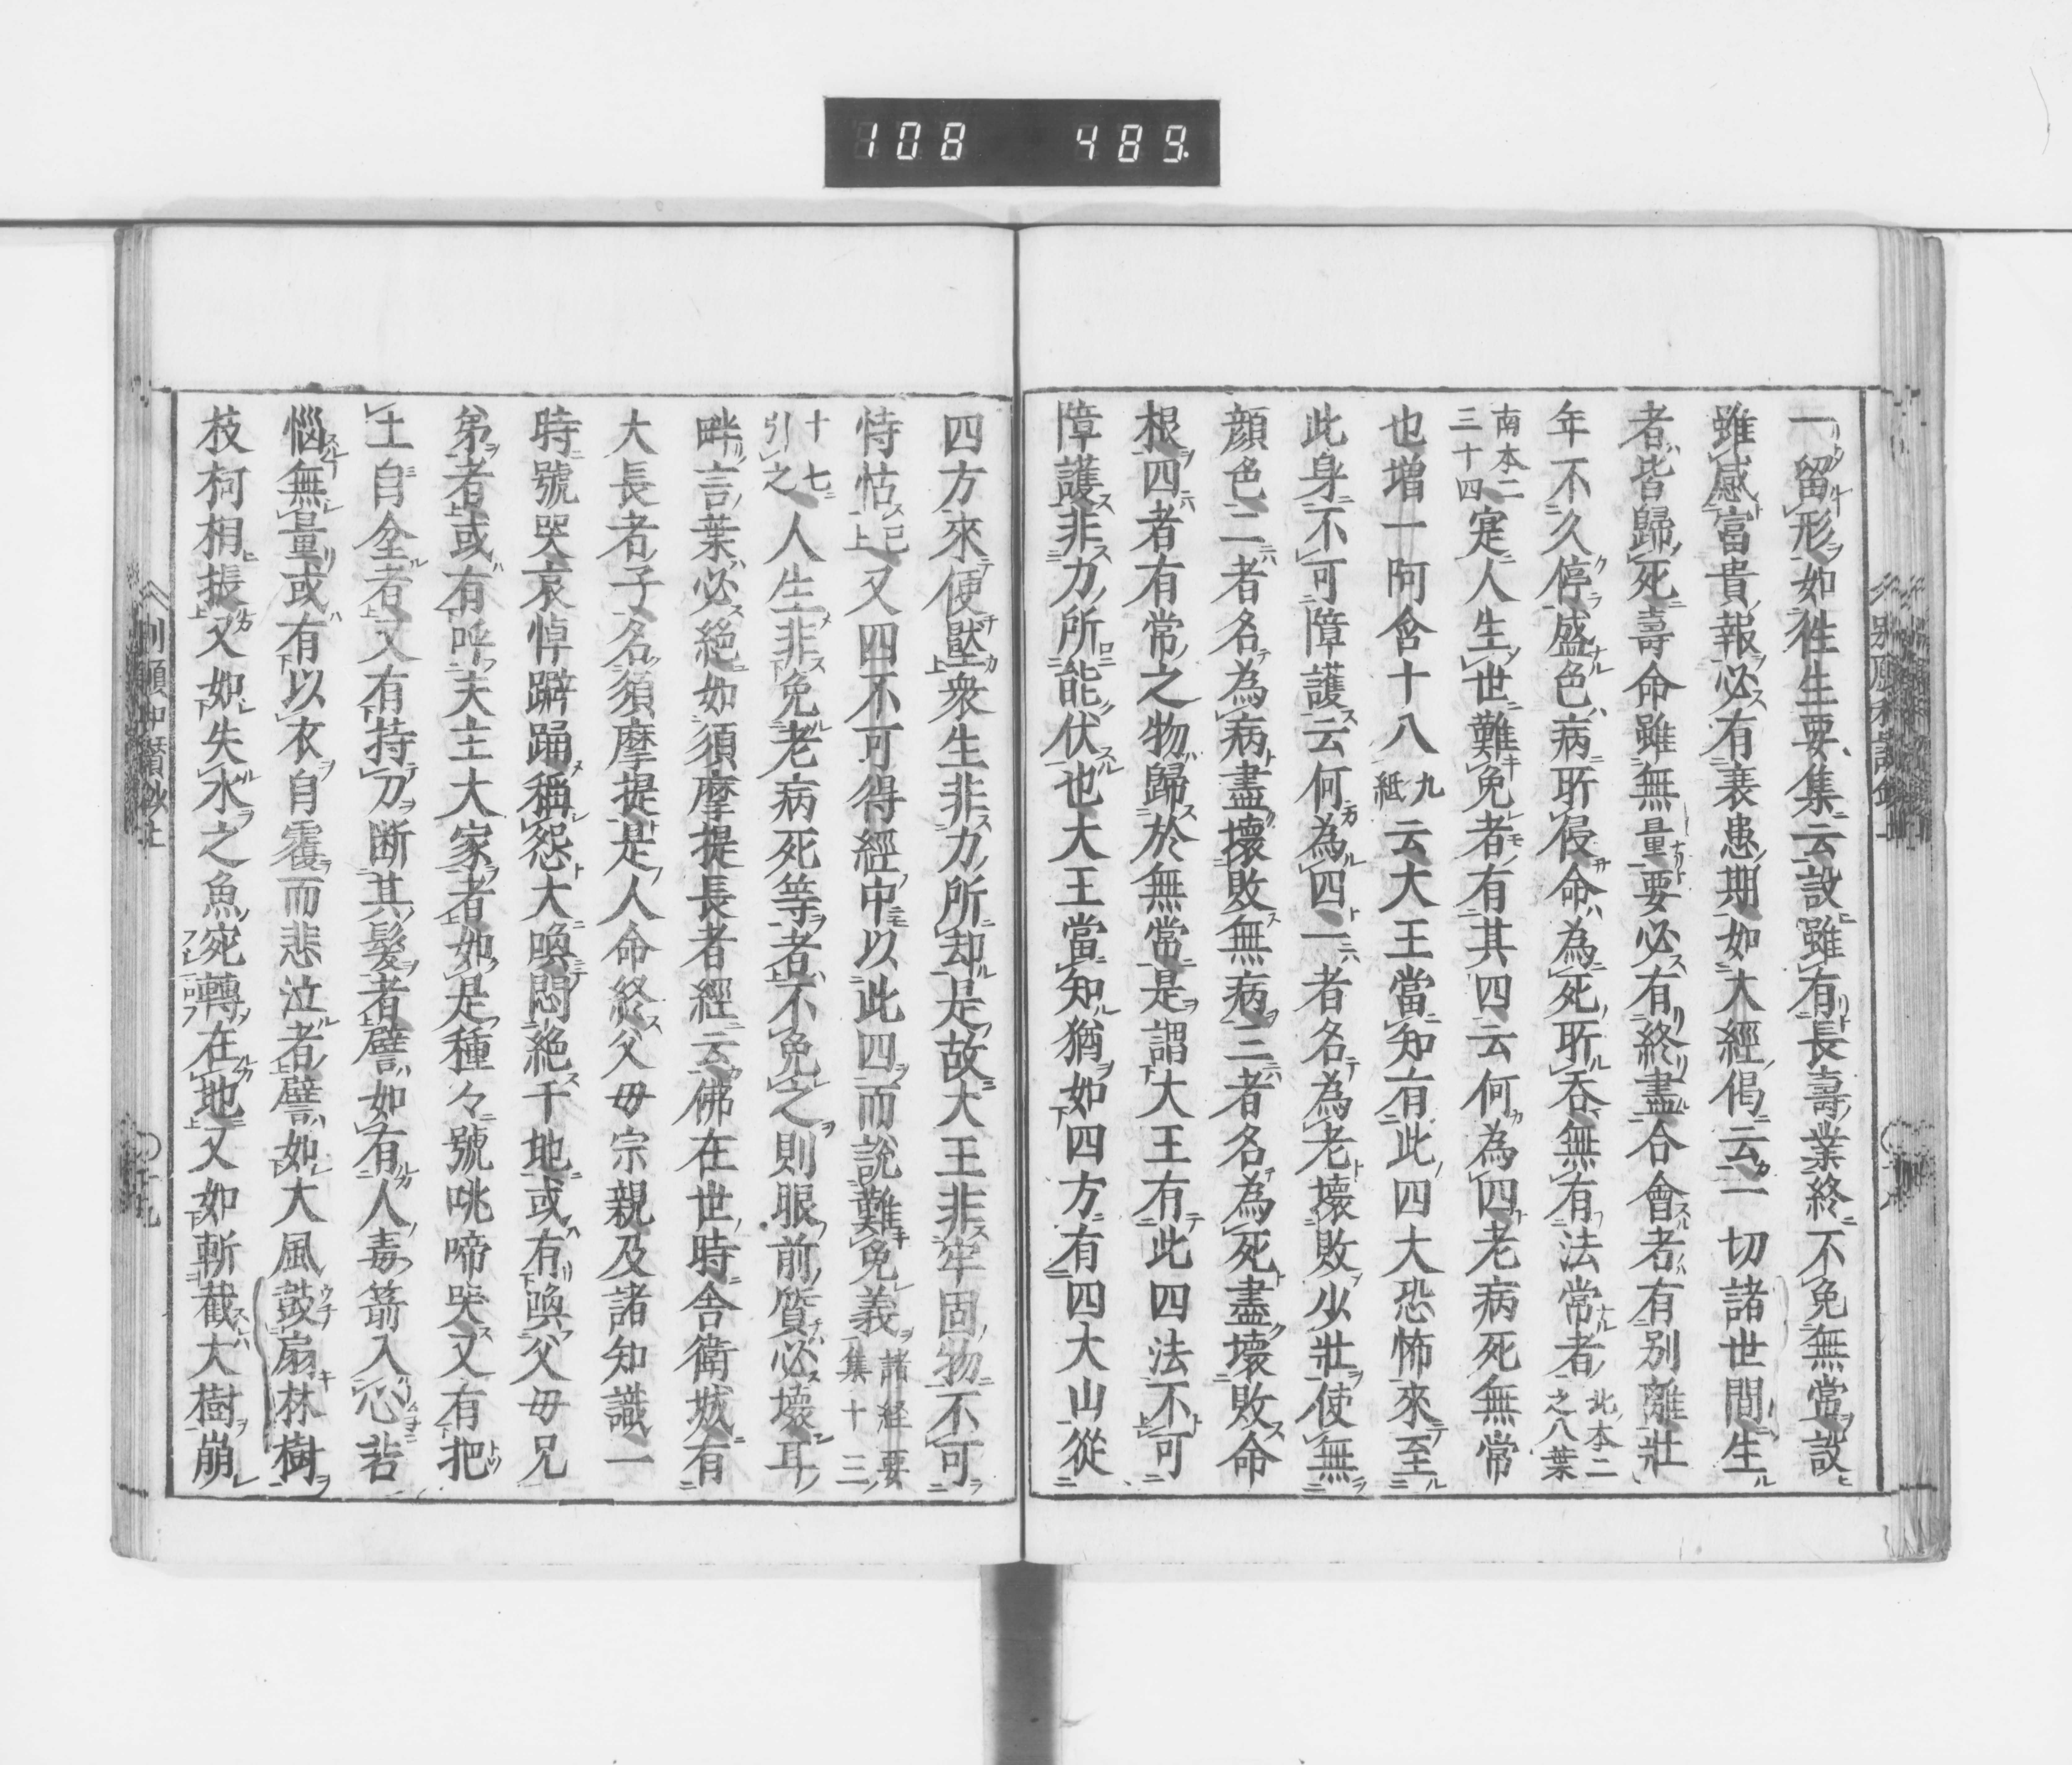 108 489
一留形如往生要集云設雖有長壽業終不免無常設
雖感富貴報必有衰患期如大經偈云一切諸世間生
者皆歸死壽命雖無量要必有終盡合會者有別離壯
年不久停盛色病所侵命為死所吞無有法常者北本二之八葉
南本二三十四寔人生世難免者有其四云何為四老病死無常
也增一阿含十八九紙云大王當知有此四大恐怖來至
此身不可障護云何為四一者名為老壞敗少壯使無
顏色二者名為病盡壞敗無病三者名為死盡壞敗命
根四者有常之物歸於無常是謂大王有此四法不可
障護非力所能伏也大王當知猶如四方有四大山從
四方來便壓衆生非力所却是故大王非牢固物不可
恃怙已上又四不可得經中以此四而説難免義諸経要集十三
十七引之人生非免老病死等者不免之則眼前質必壞耳
畔言葉必絶如須摩提長者經云佛在世時舎衛城有
大長者子名須摩提是人命終父母宗親及諸知識一
時號哭哀悼躃踊稱怨大喚悶絶于地或有喚父母兄
弟者或有呼夫主大家者如是種々號咷啼哭又有把
土自坌者又有持刀断其髮者譬如有人毒箭入心苦
惱無量或有以衣自覆而悲泣者譬如大風鼓扇林樹
枝柯相振又如失水之魚宛轉在地又如斬截大樹崩